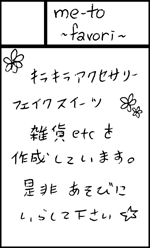 me-to
~favori~
キラキラアクセサリー
フェイクスイーツ
雑貨etcを
作成しています。
是非あそびに
いらして下さい☆